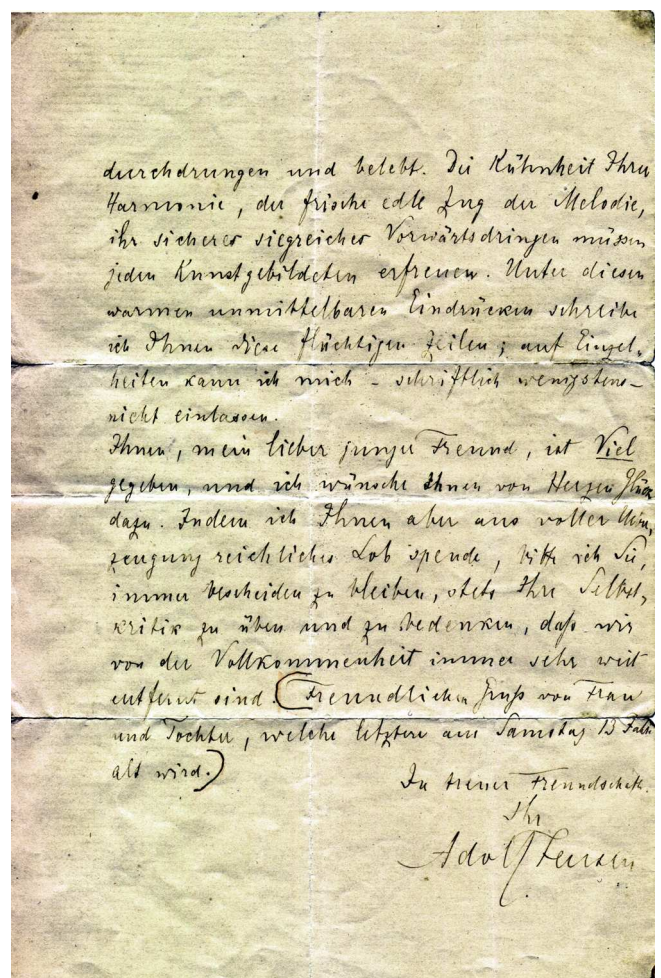 durchdrungen und belebt. Die Kühnheit Ihrer
Harmonie, der frische edle Zug der Melodie,
ihr sicheres siegreiches Vorwärtsdringen müssen
jeden Kunstgebildeten erfreuen. Unter diesen
warmen unmittelbaren Eindrücken schreibe
ich Ihnen diese flüchtigen Zeilen; auf Einzel-
heiten kann ich mich – schriftlich wenigstens –
nicht einlassen.
Ihnen, mein lieber junger Freund, ist Viel
gegeben, und ich wünsche Ihnen von Herzen Glück
dazu. Indem ich Ihnen aber aus voller Über-
zeugung reichliches Lob spende, bitte ich Sie,
immer bescheiden zu bleiben, stets Ihre Selbst-
kritik zu üben und zu bedenken, daß wir
von der Vollkommenheit immer sehr weit
entfernt sind. (Freundlichen Gruß von Frau
und Tochter, welche letztere am Samstag 13 Jahr
alt wird.)
In treuer Freundschaft
Ihr
Adolf Jensen